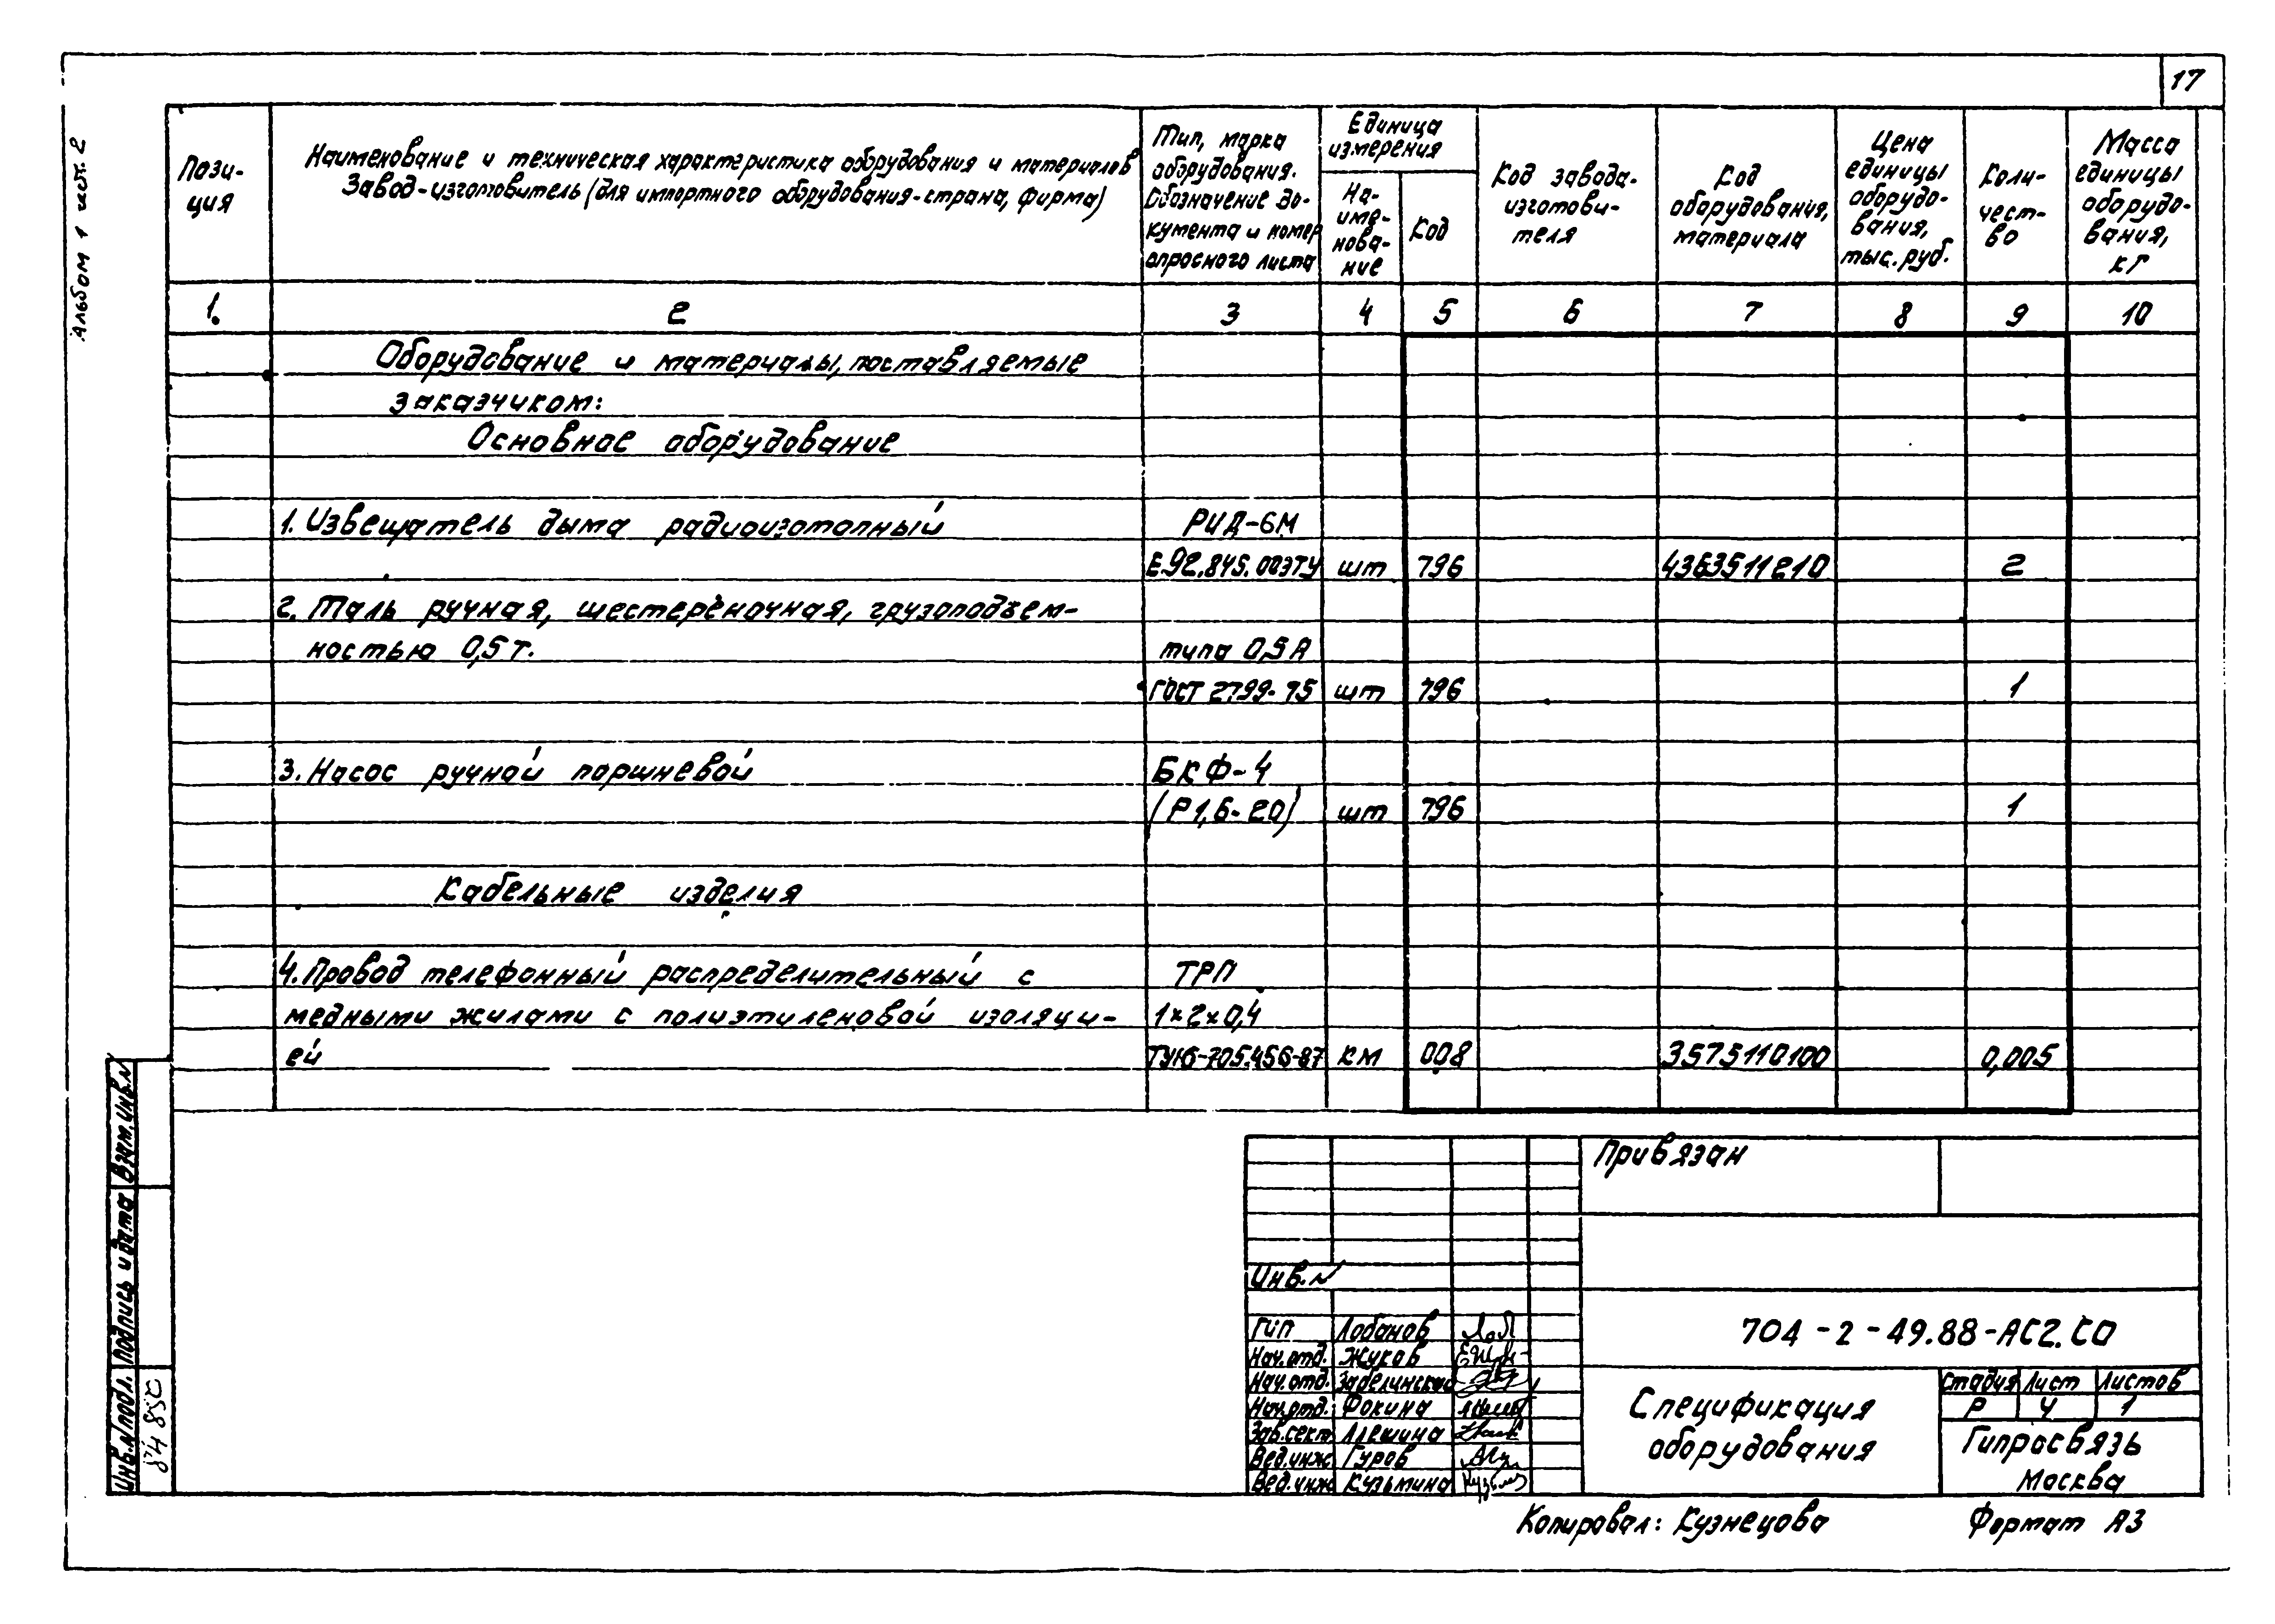 17
Альбом 1 част. 2
Пози-
ция
Наименование и техническая характеристика оборудования и материалов
Завод-изготовитель (для импортного оборудования-страна, фирма)
Тип, марка
оборудования.
Обозначение до-
кумента и номер
опросного листа
Единица
измерения
На-
име-
нова-
ние
Код
Код завода-
изготови-
теля
Код
оборудования,
материала
Цена
единицы
оборудо-
вания,
тыс. руб.
Коли-
чест-
во
Масса
единицы
оборудо-
вания,
кг
1. 2 3 4 5 6 7 8 9 10
Оборудование и материалы, поставляемые
заказчиком:
Основное оборудование
1. Извещатель дыма радиоизотопный РИД-6М
Е92.845.003ТУ шт 796 4363511210 2
2. Таль ручная, шестерёночная, грузоподъем-
ностью 0,5 т. типа 0,5А
ГОСТ 2799-75 шт 796 1
3. Насос ручной поршневой БКФ-4
(Р1,6-20) шт 796 1
Кабельные изделия
4. Провод телефонный распределительный с ТРП
медными жилами с полиэтиленовой изоляци- 1×2×0,4
ей ТУ16-705.456-87 км 008 3575110100 0,005
Привязан
Инв.№
ГИП Лобанов
Нач.отд. Жуков
Нач.отд. Забелинская
Нач.отд. Фокина
Зав.сект. Алешина
Вед.инж Гуров
Вед.инж Кузьмина
704-2-49.88-АС2.СО
Спецификация
оборудования
Стадия Лист Листов
Р 4 1
Гипросвязь
Москва
Инв.№подл. Подпись и дата Взам.инв.№
Копировал: Кузнецова Формат А3